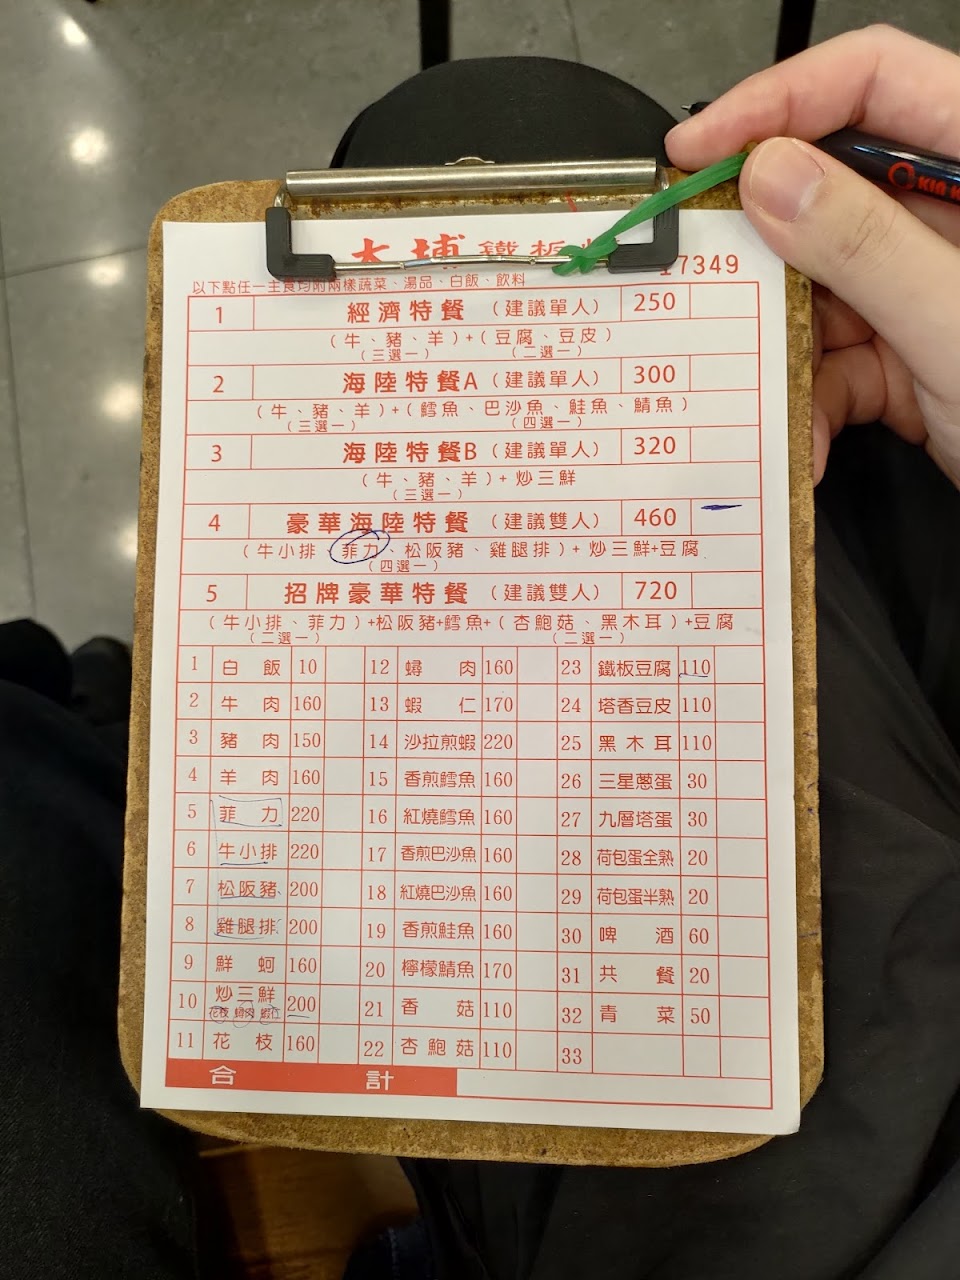 大埔鐵板燒
17349
以下點任一主食均附兩樣蔬菜、湯品、白飯、飲料
1 經濟特餐 (建議單人) 250
(牛、豬、羊)+(豆腐、豆皮)
(三選一) (二選一)
2 海陸特餐A (建議單人) 300
(牛、豬、羊)+(鱈魚、巴沙魚、鮭魚、鯖魚)
(三選一) (四選一)
3 海陸特餐B (建議單人) 320
(牛、豬、羊)+炒三鮮
(三選一)
4 豪華海陸特餐 (建議雙人) 460
(牛小排、菲力、松阪豬、雞腿排)+炒三鮮+豆腐
(四選一)
5 招牌豪華特餐 (建議雙人) 720
(牛小排、菲力)+松阪豬+鱈魚+(杏鮑菇、黑木耳)+豆腐
(二選一) (二選一)
1 白飯 10 12 蟳肉 160 23 鐵板豆腐 110
2 牛肉 160 13 蝦仁 170 24 塔香豆皮 110
3 豬肉 150 14 沙拉煎蝦 220 25 黑木耳 110
4 羊肉 160 15 香煎鱈魚 160 26 三星蔥蛋 30
5 菲力 220 16 紅燒鱈魚 160 27 九層塔蛋 30
6 牛小排 220 17 香煎巴沙魚 160 28 荷包蛋全熟 20
7 松阪豬 200 18 紅燒巴沙魚 160 29 荷包蛋半熟 20
8 雞腿排 200 19 香煎鮭魚 160 30 啤酒 60
9 鮮蚵 160 20 檸檬鯖魚 170 31 共餐 20
10 炒三鮮 花枝 蟳肉 蝦仁 200 21 香菇 110 32 青菜 50
11 花枝 160 22 杏鮑菇 110 33
合計